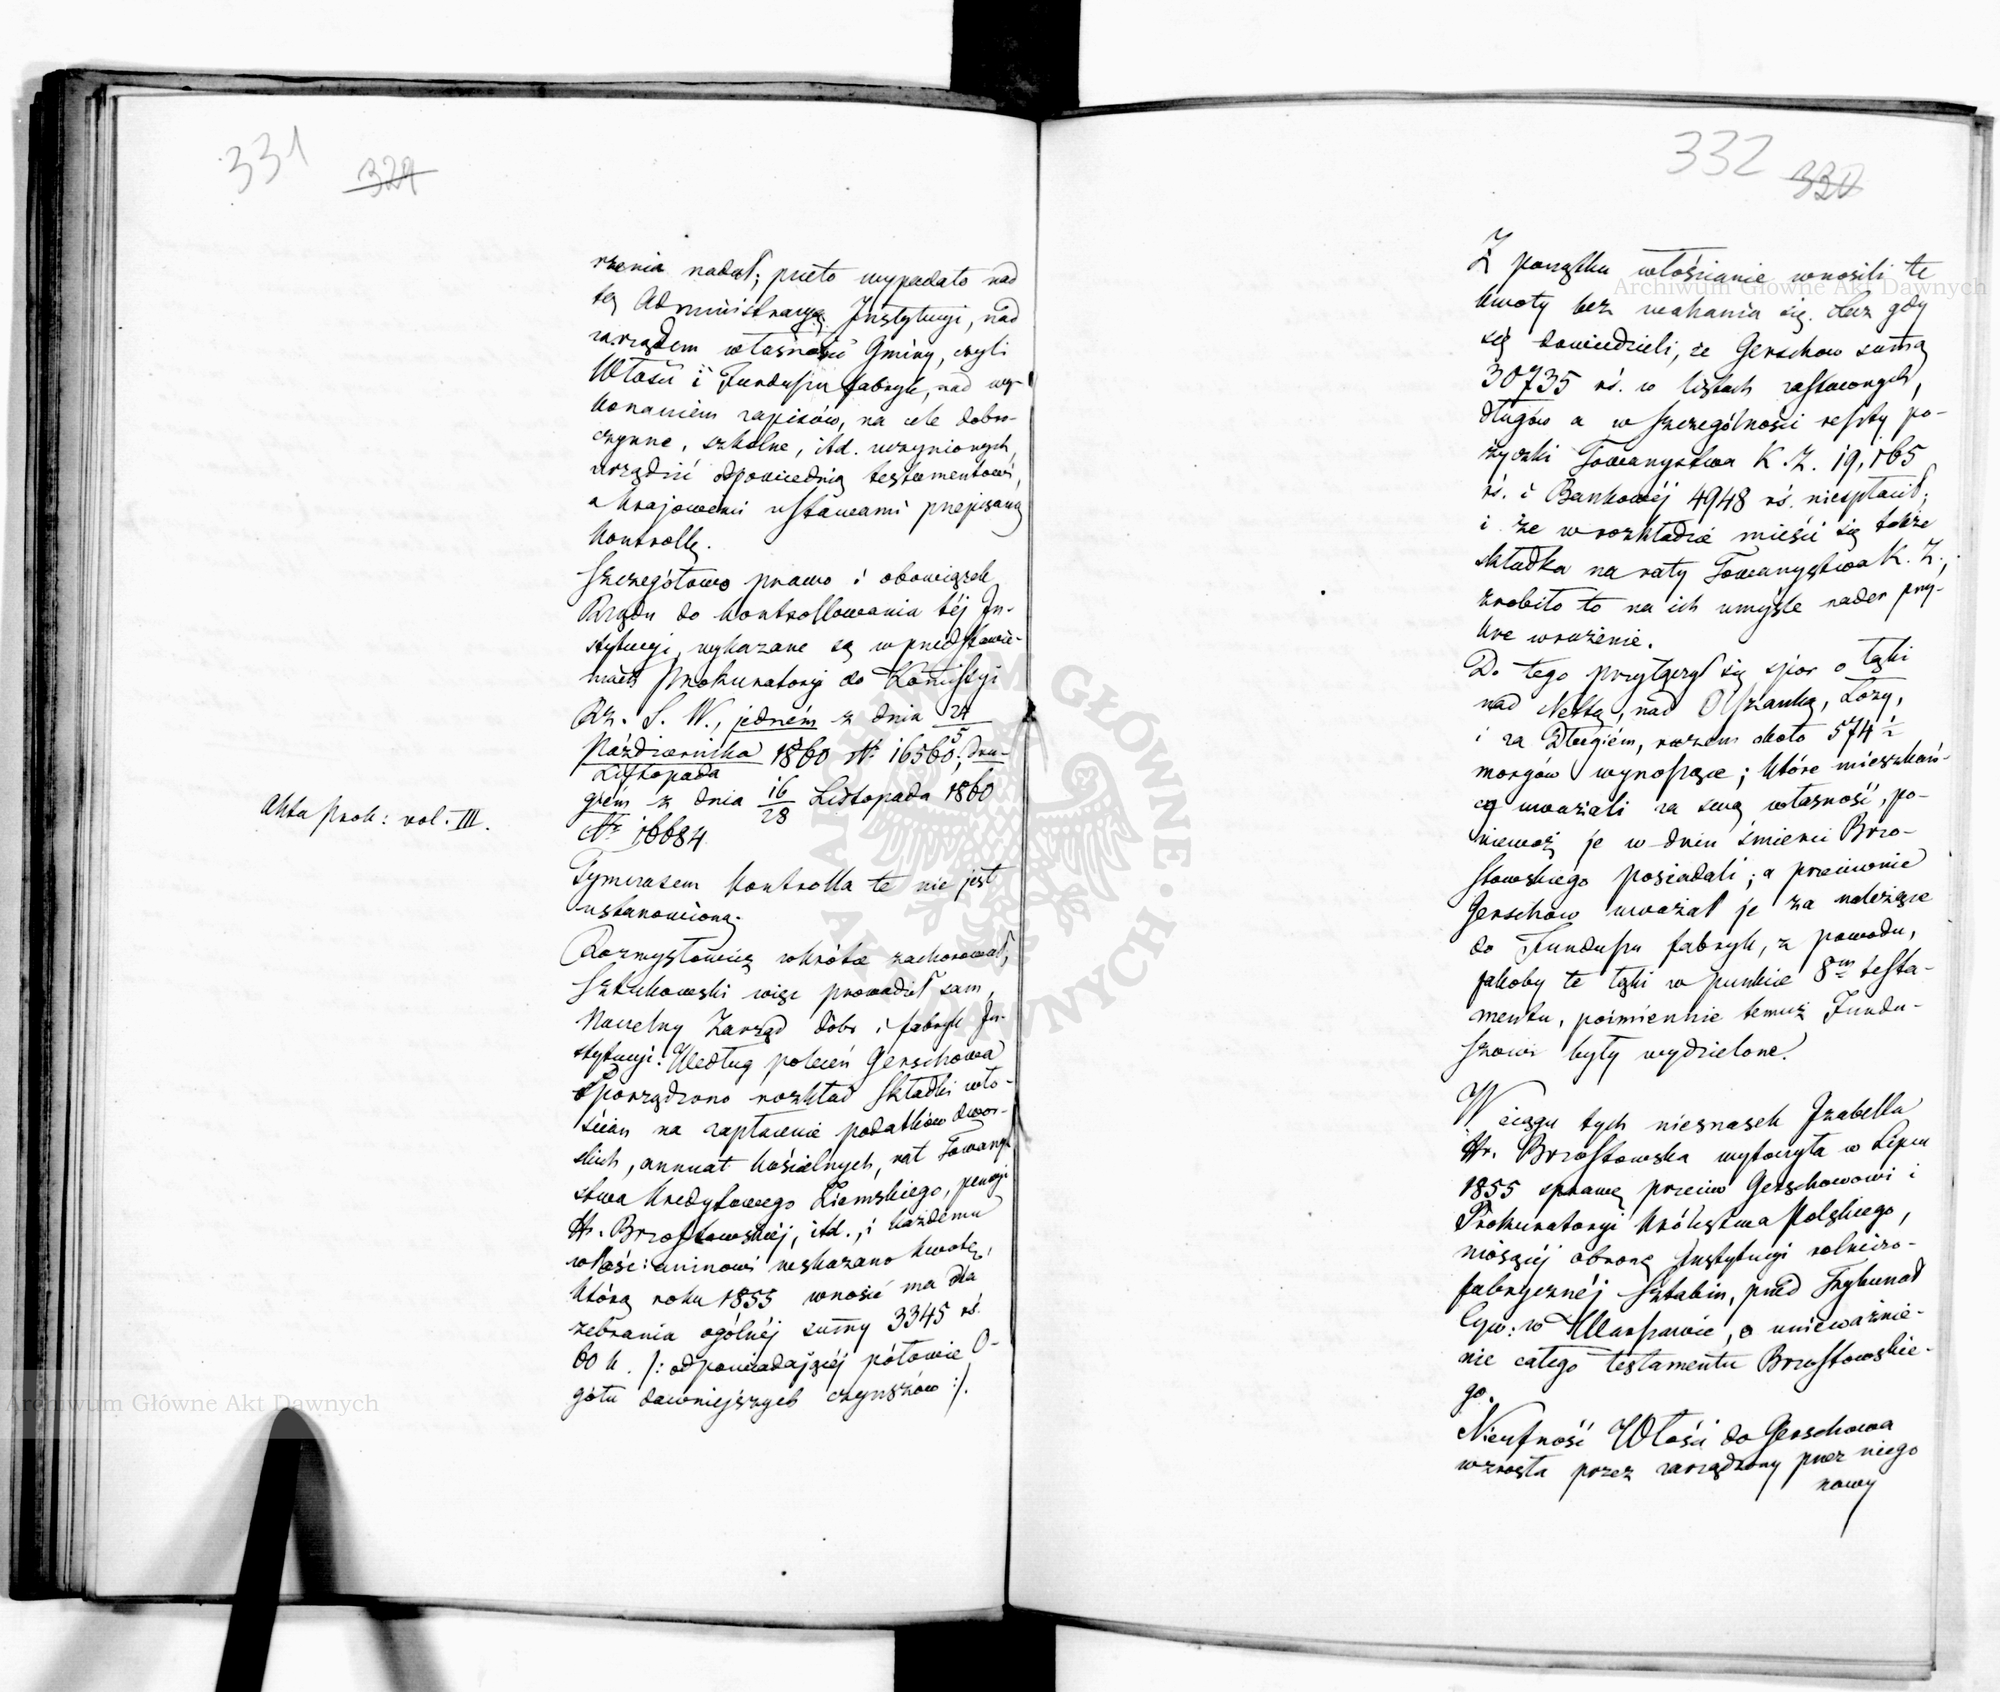 331 329
rzenia nadał; przeto wypadało nad
tą Administracyą Instytucyi, nad
zarządem własności Gminy, czyli
Włości i Funduszu fabryk, nad wy-
konaniem zapisów, na cele dobro-
czynne, szkolne, itd. uczynionych,
urządzić odpowiednią testamentowi,
a krajowemi ustawami przepisaną
kontrollę.
Szczegółowo prawo i obowiązek
Rządu do kontrollowania téj In-
stytucyi, wykazane są w przedstawie-
niach Prokuratoryi do Kommissyi
Rz. S. W., jedném z dnia 24
Października 1860 Nr 16560; dru-
Listopada 5
giém z dnia 16/28 Listopada 1860
Nr 16684.
Akta Prok: vol. III.
Tymczasem kontrolla ta nie jest
ustanowioną.
Rozmysłowicz wkrótce zachorował,
Sztukowski więc prowadził sam,
Naczelny Zarząd dóbr i fabryk In-
stytucyi. Według poleceń Gerschowa
sporządzono rozkład składki wło-
ścian na zapłacenie podatków dwor-
skich, annuat kościelnych, rat Towarzy-
stwa Kredytowego Ziemskiego, pensyi
Hr. Brzostowskiéj, itd., i każdemu
włości:aninowi wskazano kwotę,
którą roku 1855 wnosić ma dla
zebrania ogólnéj summy 3345 rś.
60 k. /: odpowiadającéj połowie O-
gółu dawniejszych czynszów :/.
332 330
Z początku włościanie wnosili te
kwoty bez wahania się. Lecz gdy
się dowiedzieli, że Gerschow summą
30735 rś. w listach zastawnych,
długów a w szczególności reszty po-
życzki Towarzystwa K. Z. 19,165
rś. i Bankowéj 4948 rś. niespłacił;
i że w rozkładzie mieści się także
składka na raty Towarzystwa K. Z.;
zrobiło to na ich umyśle nader przy-
kre wrażenie.
Do tego przyłączył się spór o łąki
nad Nettą, nad Olszanką, Łozy,
i za Długiém, razem około 574 ½
morgów wynoszące; które mieszkań-
cy uważali za swą własność, po-
nieważ je w dniu śmierci Brzo-
stowskiego posiadali; a przeciwnie
Gerschow uważał je za należące
do Funduszu fabryk, z powodu,
jakoby te łąki w punkcie 8m testa-
mentu, poimiennie temuż Fundu-
szowi były wydzielone.
W ciągu tych niesnasek Izabella
Hr. Brzostowska wytoczyła w Lipcu
1855 sprawę przeciw Gerschowowi i
Prokuratoryi Królestwa Polskiego,
niosącéj obronę Instytucyi rolniczo-
fabrycznéj Sztabin, przed Trybunał
Cyw: w Warszawie, o unieważnie-
nie całego testamentu Brzostowskie-
go.
Nieufność Włości do Gerschowa
wzrosła przez zarządzony przez niego
nowy
Archiwum Główne Akt Dawnych
Archiwum Główne Akt Dawnych
ARCHIWUM GŁÓWNE AKT DAWNYCH